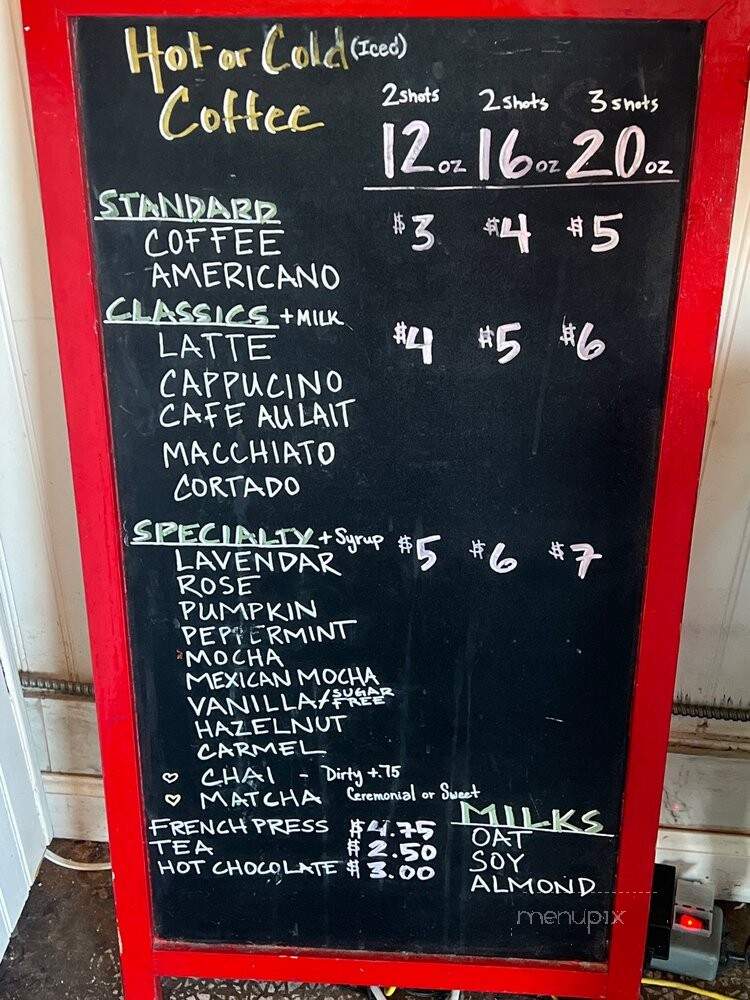 Hot or Cold (Iced)
Coffee
2 shots 2 shots 3 shots
12 oz 16 oz 20 oz
STANDARD
COFFEE $3 $4 $5
AMERICANO
CLASSICS + MILK
LATTE $4 $5 $6
CAPPUCINO
CAFE AU LAIT
MACCHIATO
CORTADO
SPECIALTY + Syrup $5 $6 $7
LAVENDAR
ROSE
PUMPKIN
PEPPERMINT
MOCHA
MEXICAN MOCHA
VANILLA/SUGAR FREE
HAZELNUT
CARMEL
♡ CHAI - Dirty +.75
♡ MATCHA Ceremonial or Sweet
FRENCH PRESS $4.75
TEA $2.50
HOT CHOCOLATE $3.00
MILKS
OAT
SOY
ALMOND
menupix